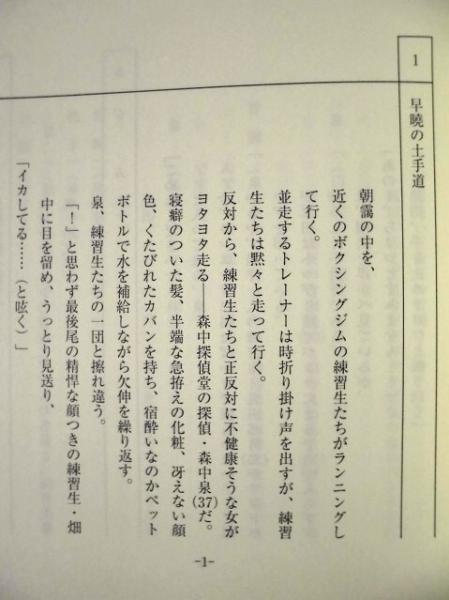 1
早曉の土手道
朝靄の中を、
近くのボクシングジムの練習生たちがランニングし
て行く。
並走するトレーナーは時折り掛け声を出すが、練習
生たちは黙々と走って行く。
反対から、練習生たちと正反対に不健康そうな女が
ヨタヨタ走る――森中探偵堂の探偵・森中泉(37)だ。
寝癖のついた髪、半端な急拵えの化粧、冴えない顔
色、くたびれたカバンを持ち、宿酔いなのかペット
ボトルで水を補給しながら欠伸を繰り返す。
泉、練習生たちの一団と擦れ違う。
「！」と思わず最後尾の精悍な顔つきの練習生・畑
中に目を留め、うっとり見送り、
「イカしてる……（と呟く）」
-1-